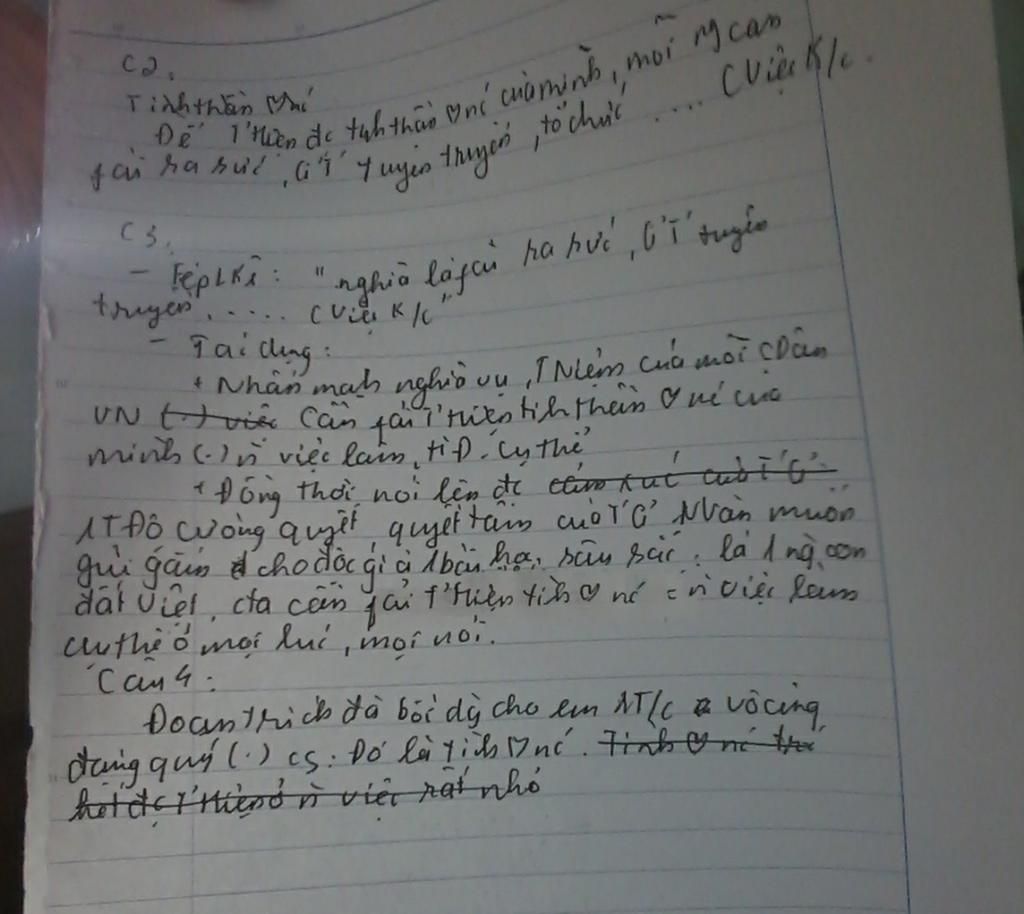 C2.
Tinh thần ♡ nc
Để T'hiện đc tinh thần ♡ nc của mình, mỗi ng cần
fải ra sức, GT' tuyên truyền, tổ chức .... CViệc K/c.
C3.
- Fép LKê: "nghĩa là fải ra sức, GT' tuyên
truyền, ..... CViệc K/c"
- Tác dụng:
+ Nhấn mạnh nghĩa vụ, TNhiệm của mỗi CDân
VN (.) việc cần fải T'hiện tinh thần ♡ nc của
mình (.) n~ việc làm, HĐ. Cụ thể
+ Đồng thời nói lên đc cảm xúc của T'G'
1 TĐộ cương quyết, quyết tâm của T'G' Nhân muốn
gửi gắm đ cho độc giả 1 bài học sâu sắc. là 1 ng con
đất Việt, cta cần fải T'hiện tình ♡ nc = n~ việc làm
cụ thể ở mọi lúc, mọi nơi.
Câu 4:
Đoạn trích đã bồi dg cho em 1 T/c vô cùng
đáng quý (.) cs: Đó là tình ♡ nc. Tình ♡ nc trc
hết đc T'hiện ở n~ việc rất nhỏ